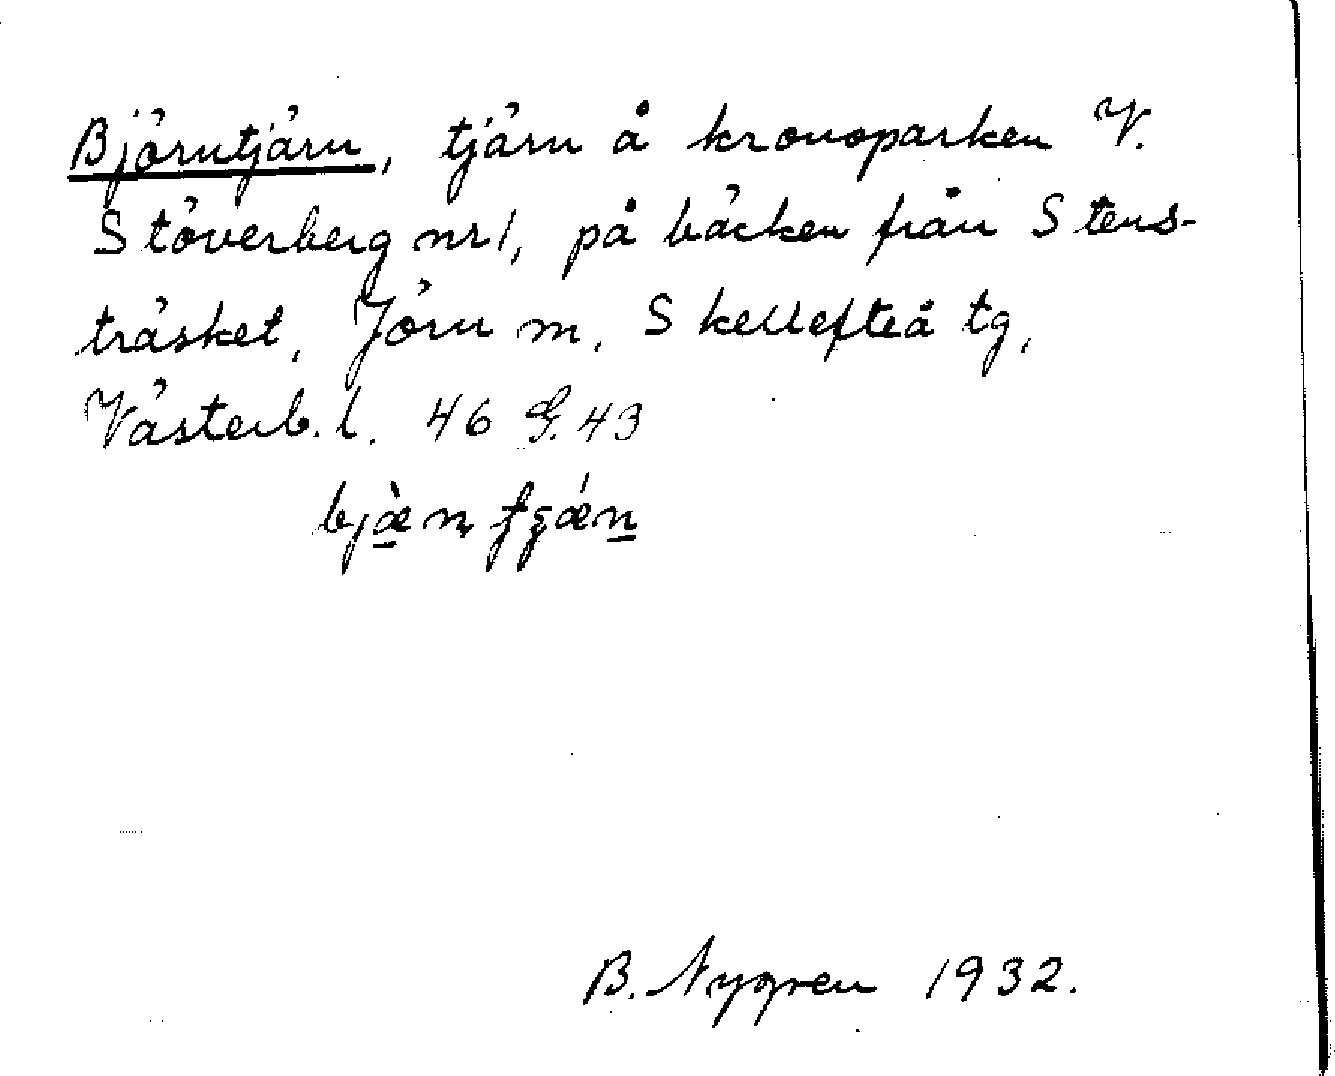 Björntjärn, tjärn å kronoparken V.
Stöverberg nr 1, på bäcken från Stens-
träsket, Jörn m, Skellefteå tg,
Västerb. l. 46 G. 43
B. Nygren 1932.